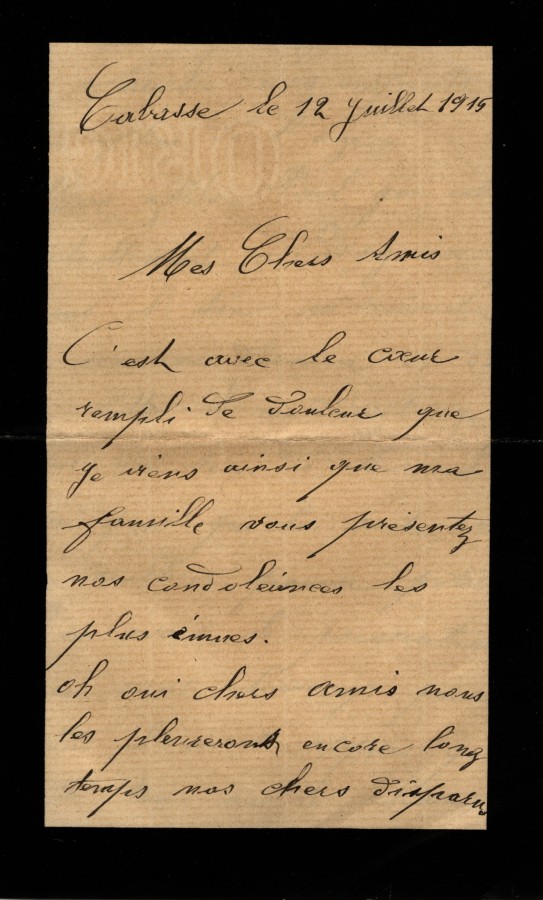 Cabasse le 12 Juillet 1915
Mes Chers Amis
C'est avec le cœur
rempli de douleur que
je viens ainsi que ma
famille vous présentez
nos condoléinces les
plus émues.
oh oui chers amis nous
les pleurerons encore long
temps nos chers disparus